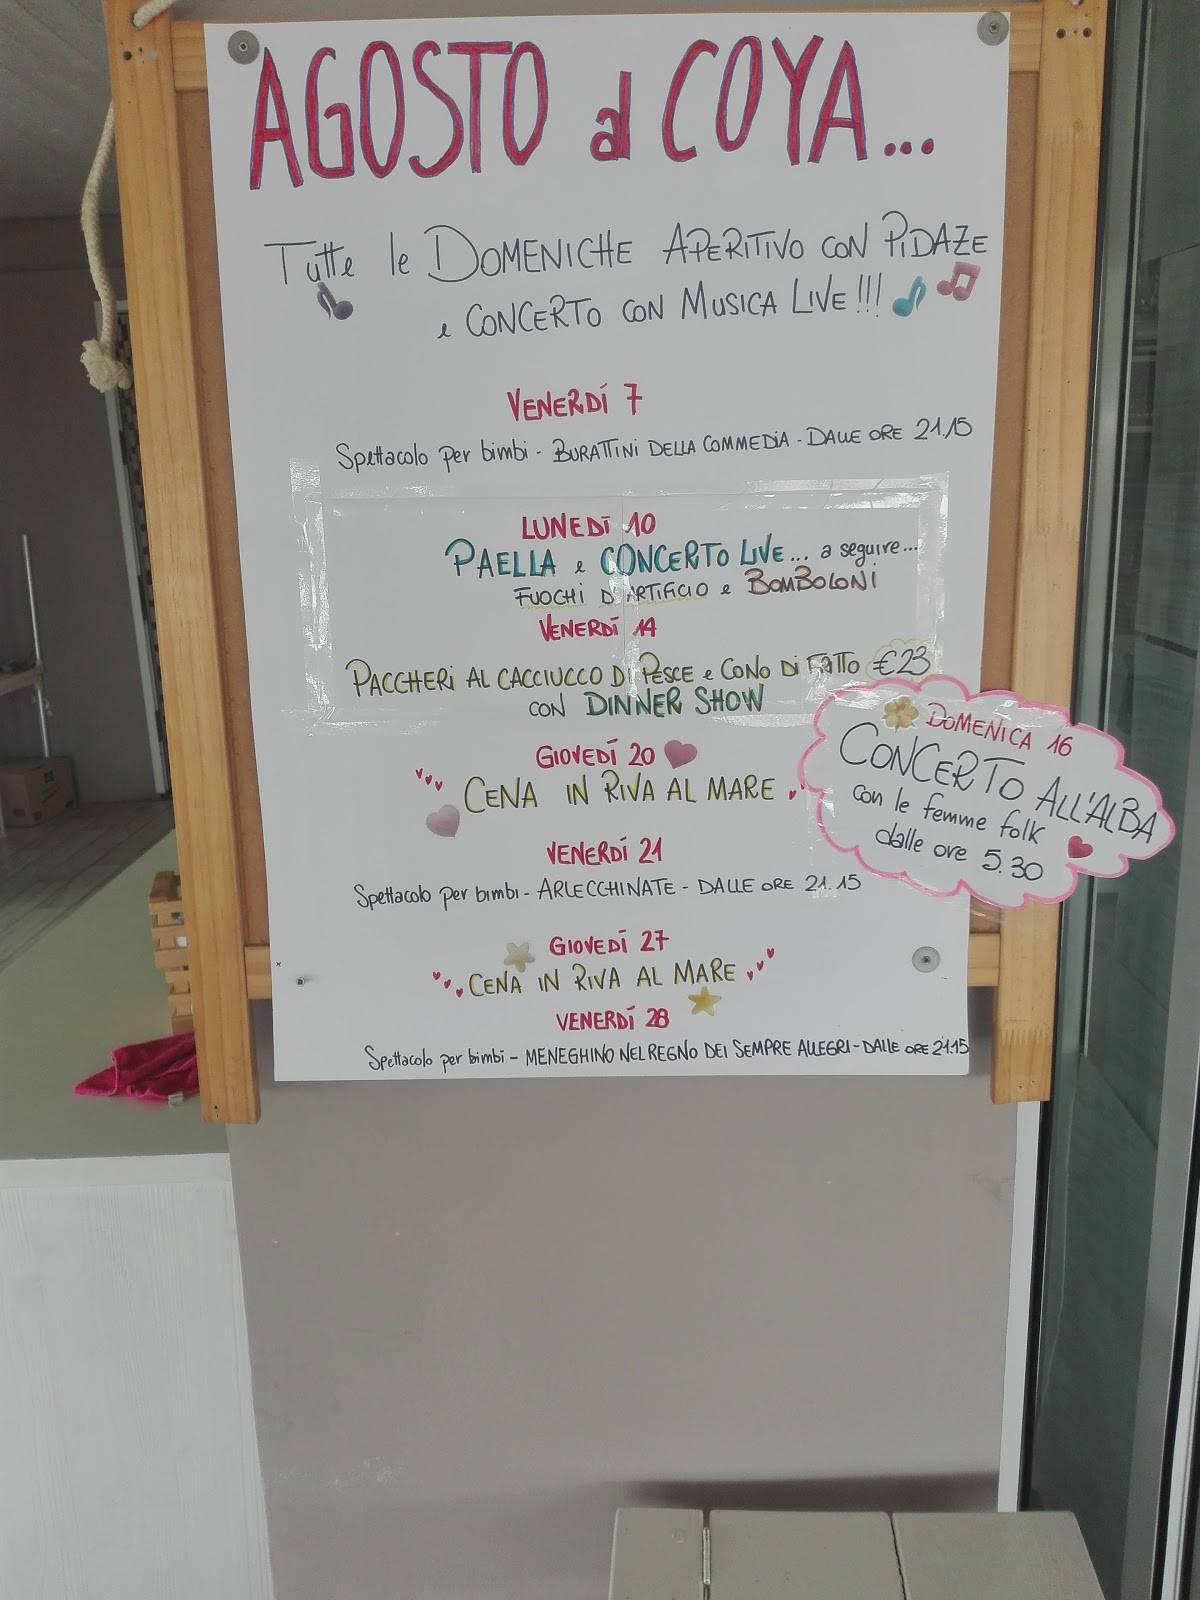 AGOSTO al COYA...
Tutte le DOMENICHE APERITIVO CON PIDAZE
e CONCERTO CON MUSICA LIVE!!!
VENERDÍ 7
Spettacolo per bimbi - BURATTINI DELLA COMMEDIA - DALLE ORE 21.15
LUNEDÍ 10
PAELLA e CONCERTO LIVE... a seguire...
FUOCHI D'ARTIFICIO e BOMBOLONI
VENERDÍ 14
PACCHERI AL CACCIUCCO DI PESCE e CONO DI FATTO €23
CON DINNER SHOW
DOMENICA 16
CONCERTO ALL'ALBA
con le femme folk
dalle ore 5.30
GIOVEDÍ 20
CENA IN RIVA AL MARE
VENERDÍ 21
Spettacolo per bimbi - ARLECCHINATE - DALLE ORE 21.15
GIOVEDÍ 27
CENA IN RIVA AL MARE
VENERDÍ 28
Spettacolo per bimbi - MENEGHINO NEL REGNO DEI SEMPRE ALLEGRI - DALLE ORE 21.15